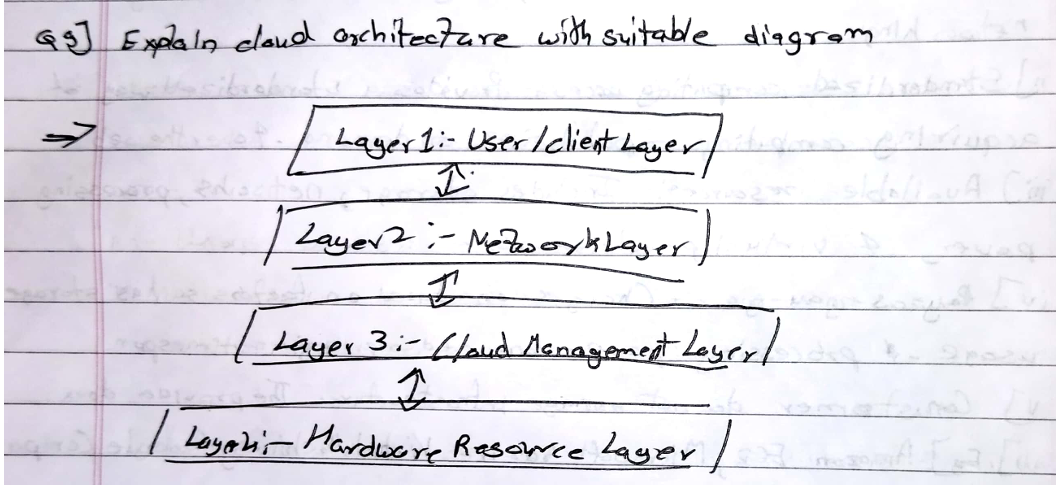 Q9] Explain cloud architecture with suitable diagram
⇒ Layer 1:- User/client Layer
Layer 2 :- Network Layer
Layer 3 :- Cloud Management Layer
Layer 4:- Hardware Resource Layer